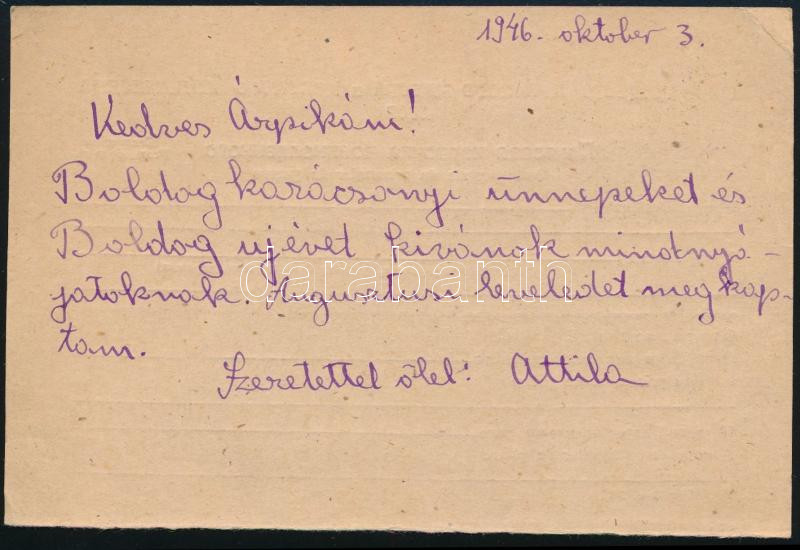 1946. oktober 3.
Kedves Árpikám!
Boldog karácsonyi ünnepeket és
Boldog ujévet kivánok mindnyá-
jatoknak. Augusztusi leveledet megkap-
tam.
Szeretettel ölel: Attila
darabanth